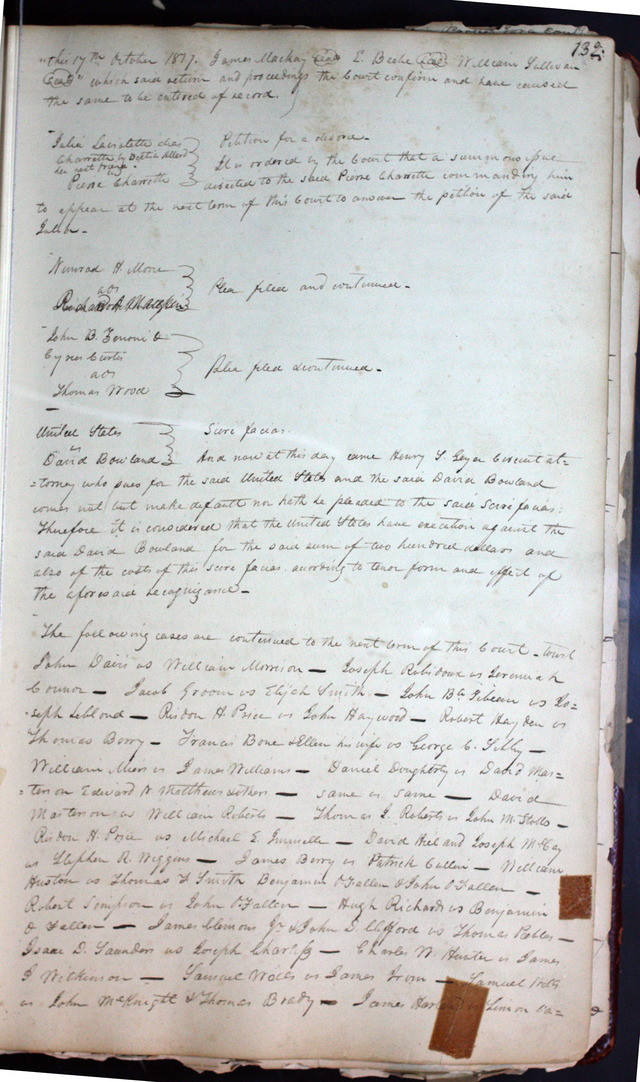 132.
"this 17th October 1817. James Mackay Seal E. Beebe Seal William Sullivan
Seal" which said return and proceedings the Court confirm and have caused
the same to be entered of record.
Julia Charrette by
her next friend
vs
Pierre Charrette
Petition for a divorce.
It is ordered by the Court that a summons issue
directed to the said Pierre Charrette commanding him
to appear at the next term of this Court to answer the petition of the said
Julia.
Nimrod H. Moore
ads
Richard
Plea filed and continued.
John B. &
Cyrus Curtis
ads
Thomas Wood
Plea filed & continued.
United States
vs
David Bowland
Scire facias.
And now at this day came Henry S. Geyer Circuit at=
=torney who sues for the said United States and the said David Bowland
comes not but make default nor hath he pleaded to the said Scire facias:
Therefore it is considered that the United States have execution against the
said David Bowland for the said sum of two hundred dollars and
also of the costs of this scire facias according to tenor form and effect of
the aforesaid recognizance.
The following cases are continued to the next term of this Court - towit
John Davis vs William Morrison — Joseph Robidoux vs Jeremiah
Connor — Jacob Groom vs Elijah Smith — John Bte vs Jo=
=seph Leblond — Risdon H. Price vs John Haywood — Robert Hayden vs
Thomas Berry — Francis Bone & Ellen his wife vs George C. Sibly —
William Miers vs James Williams — Daniel Dougherty vs David Mas=
=terson Edward N Matthews & others — same vs same — David
Masterson vs William Roberts — Thomas J. Roberts vs John
Risdon H. Price vs Michael E. Immell — David and Joseph McCoy
vs Stephen R. Wiggins — James Berry vs Patrick Cullin — William
Huston vs Thomas F Smith Benjamin O'Fallon & John O'Fallon —
Robert Simpson vs John O'Fallon — Hugh Richards vs Benjamin
O Fallon — James Clemens Jr & John D. Clifford vs Thomas Peebles —
Isaac D. Saunders vs Joseph Charless — Charles W. Hunter vs James
Wilkinson — Samuel Wolls vs James Irwin — Samuel
vs John McKnight & Thomas Brady — James vs Simon